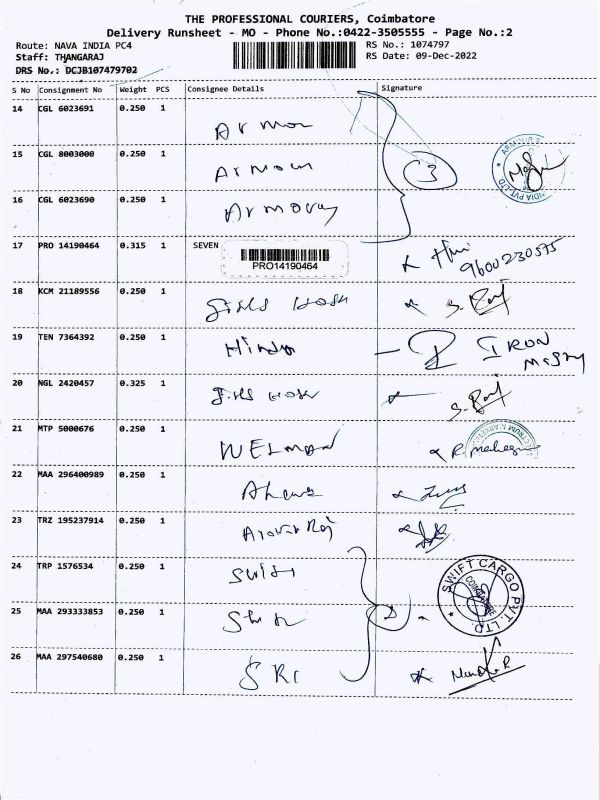 THE PROFESSIONAL COURIERS, Coimbatore
Delivery Runsheet - MO - Phone No.:0422-3505555 - Page No.:2
Route: NAVA INDIA PC4
RS No.: 1074797
Staff: THANGARAJ
RS Date: 09-Dec-2022
DRS No.: DCJB107479702
S No Consignment No Weight PCS Consignee Details Signature
14 CGL 6023691 0.250 1
15 CGL 8003000 0.250 1 Armour
16 CGL 6023690 0.250 1 Armour
3
ARMOUR INDIA PVT.LTD
17 PRO 14190464 0.315 1 SEVEN
PRO14190464
9600230575
18 KCM 21189556 0.250 1 girls Hosh
19 TEN 7364392 0.250 1 IRON
20 NGL 2420457 0.325 1
21 MTP 5000676 0.250 1 WELMAN
22 MAA 296400989 0.250 1
23 TRZ 195237914 0.250 1
24 TRP 1576534 0.250 1 Swift
SWIFT CARGO PVT. LTD.
COIMBATORE
25 MAA 293333853 0.250 1
26 MAA 297540680 0.250 1 SRI